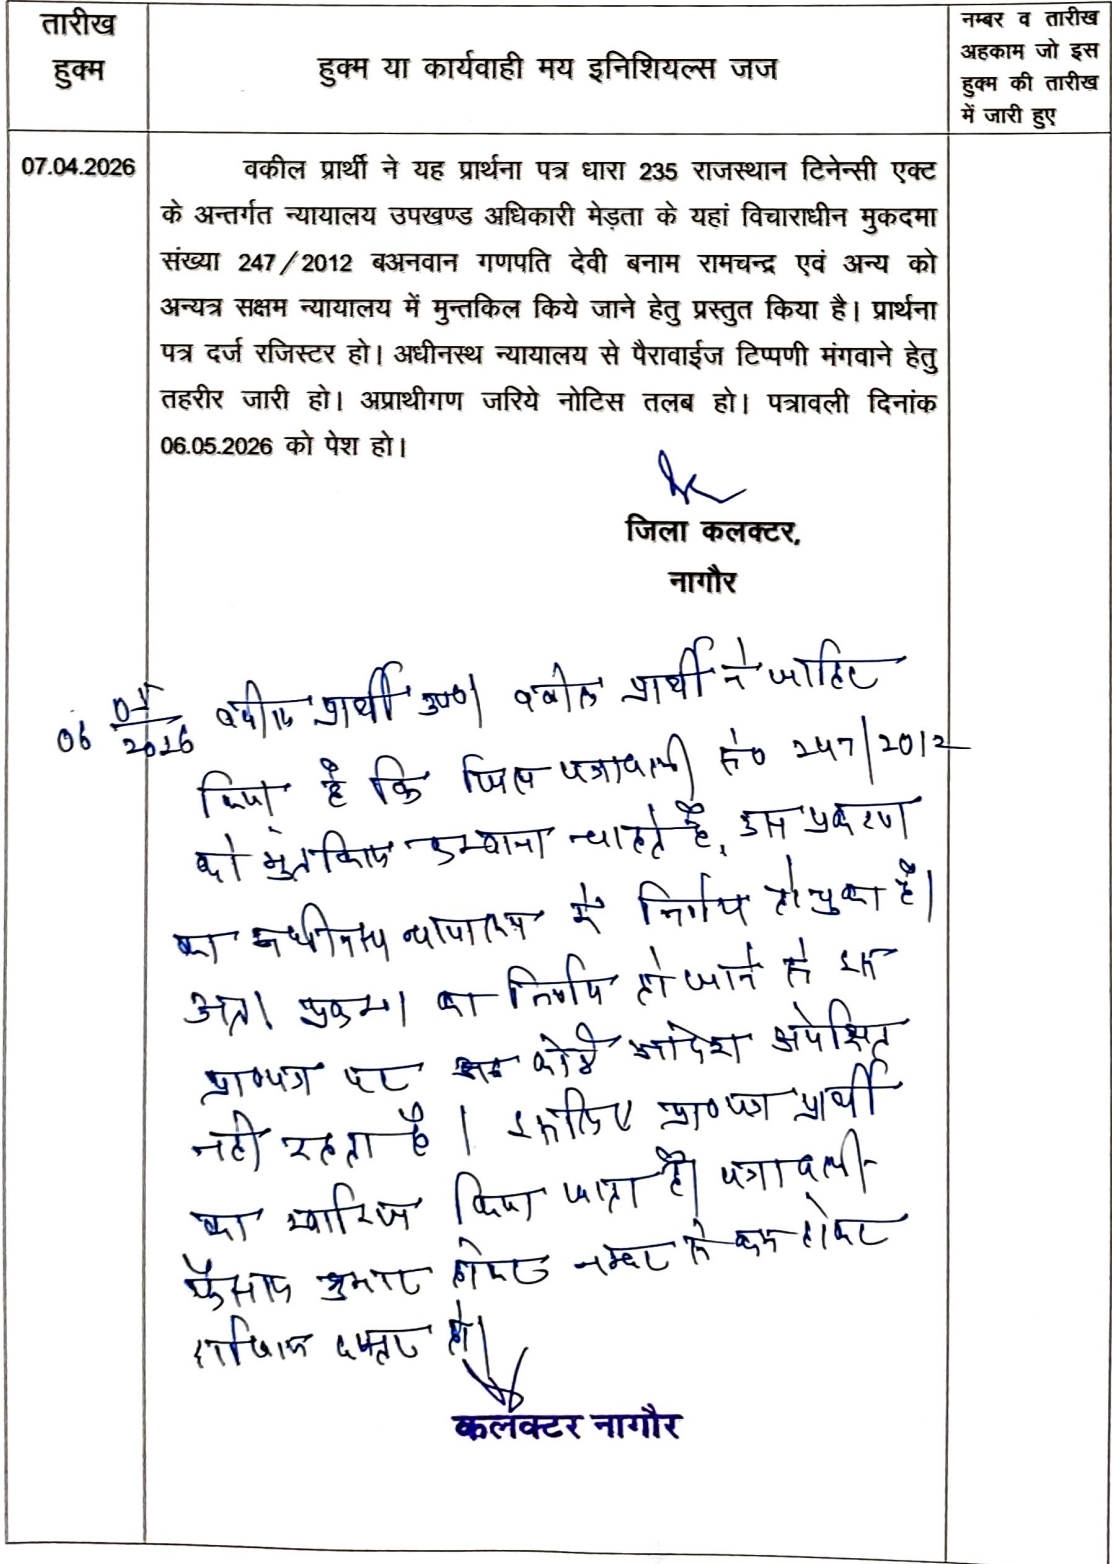 तारीख
हुक्म
हुक्म या कार्यवाही मय इनिशियल्स जज
नम्बर व तारीख
अहकाम जो इस
हुक्म की तारीख
में जारी हुए
07.04.2026
वकील प्रार्थी ने यह प्रार्थना पत्र धारा 235 राजस्थान टिनेन्सी एक्ट
के अन्तर्गत न्यायालय उपखण्ड अधिकारी मेड़ता के यहां विचाराधीन मुकदमा
संख्या 247/2012 बअनवान गणपति देवी बनाम रामचन्द्र एवं अन्य को
अन्यत्र सक्षम न्यायालय में मुन्तकिल किये जाने हेतु प्रस्तुत किया है। प्रार्थना
पत्र दर्ज रजिस्टर हो। अधीनस्थ न्यायालय से पैरावाईज टिप्पणी मंगवाने हेतु
तहरीर जारी हो। अप्राथीगण जरिये नोटिस तलब हो। पत्रावली दिनांक
06.05.2026 को पेश हो।
जिला कलक्टर,
नागौर
06 05 2026
वकील प्रार्थी उप०। वकील प्रार्थी ने जाहिर
किया है कि जिस पत्रावली सं० 247/2012
को मुंतकिल करवाना चाहते है, उस प्रकरण
का अधीनस्थ न्यायालय में निर्णय हो चुका है।
अतः प्रकरण का निर्णय हो जाने से इस
प्रा०पत्र पर कोई आदेश अपेक्षित
नहीं रहता है। इसलिए प्रा०पत्र प्रार्थी
का खारिज किया जाता है। पत्रावली
फैसल शुमार होकर नम्बर से कम होकर
दाखिल दफ्तर हो।
कलक्टर नागौर